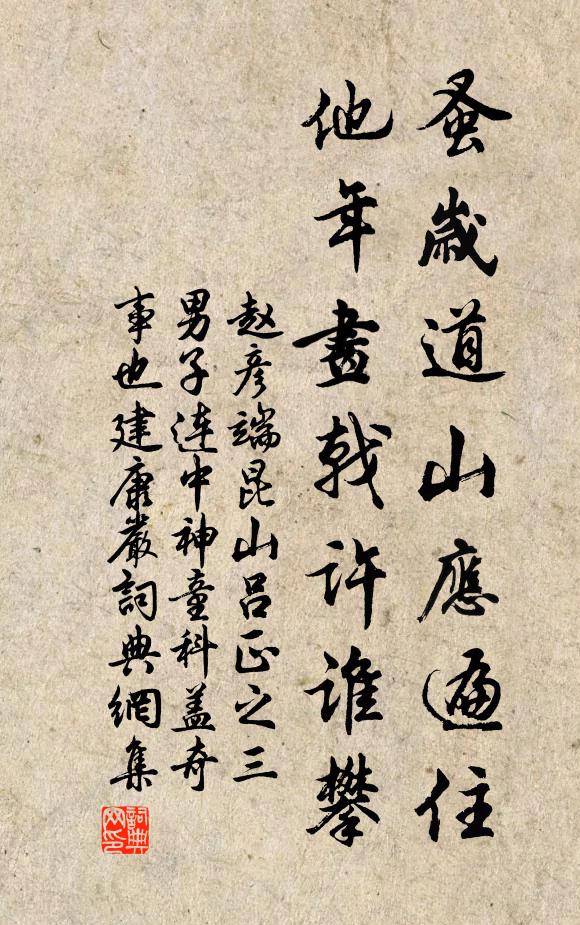 蚤歲道山應遍住
他年畫戟許誰攀
赵彥端昆山吕正之三
男子连中神童科盖奇
事也建康嚴詞典網集
詞典網印